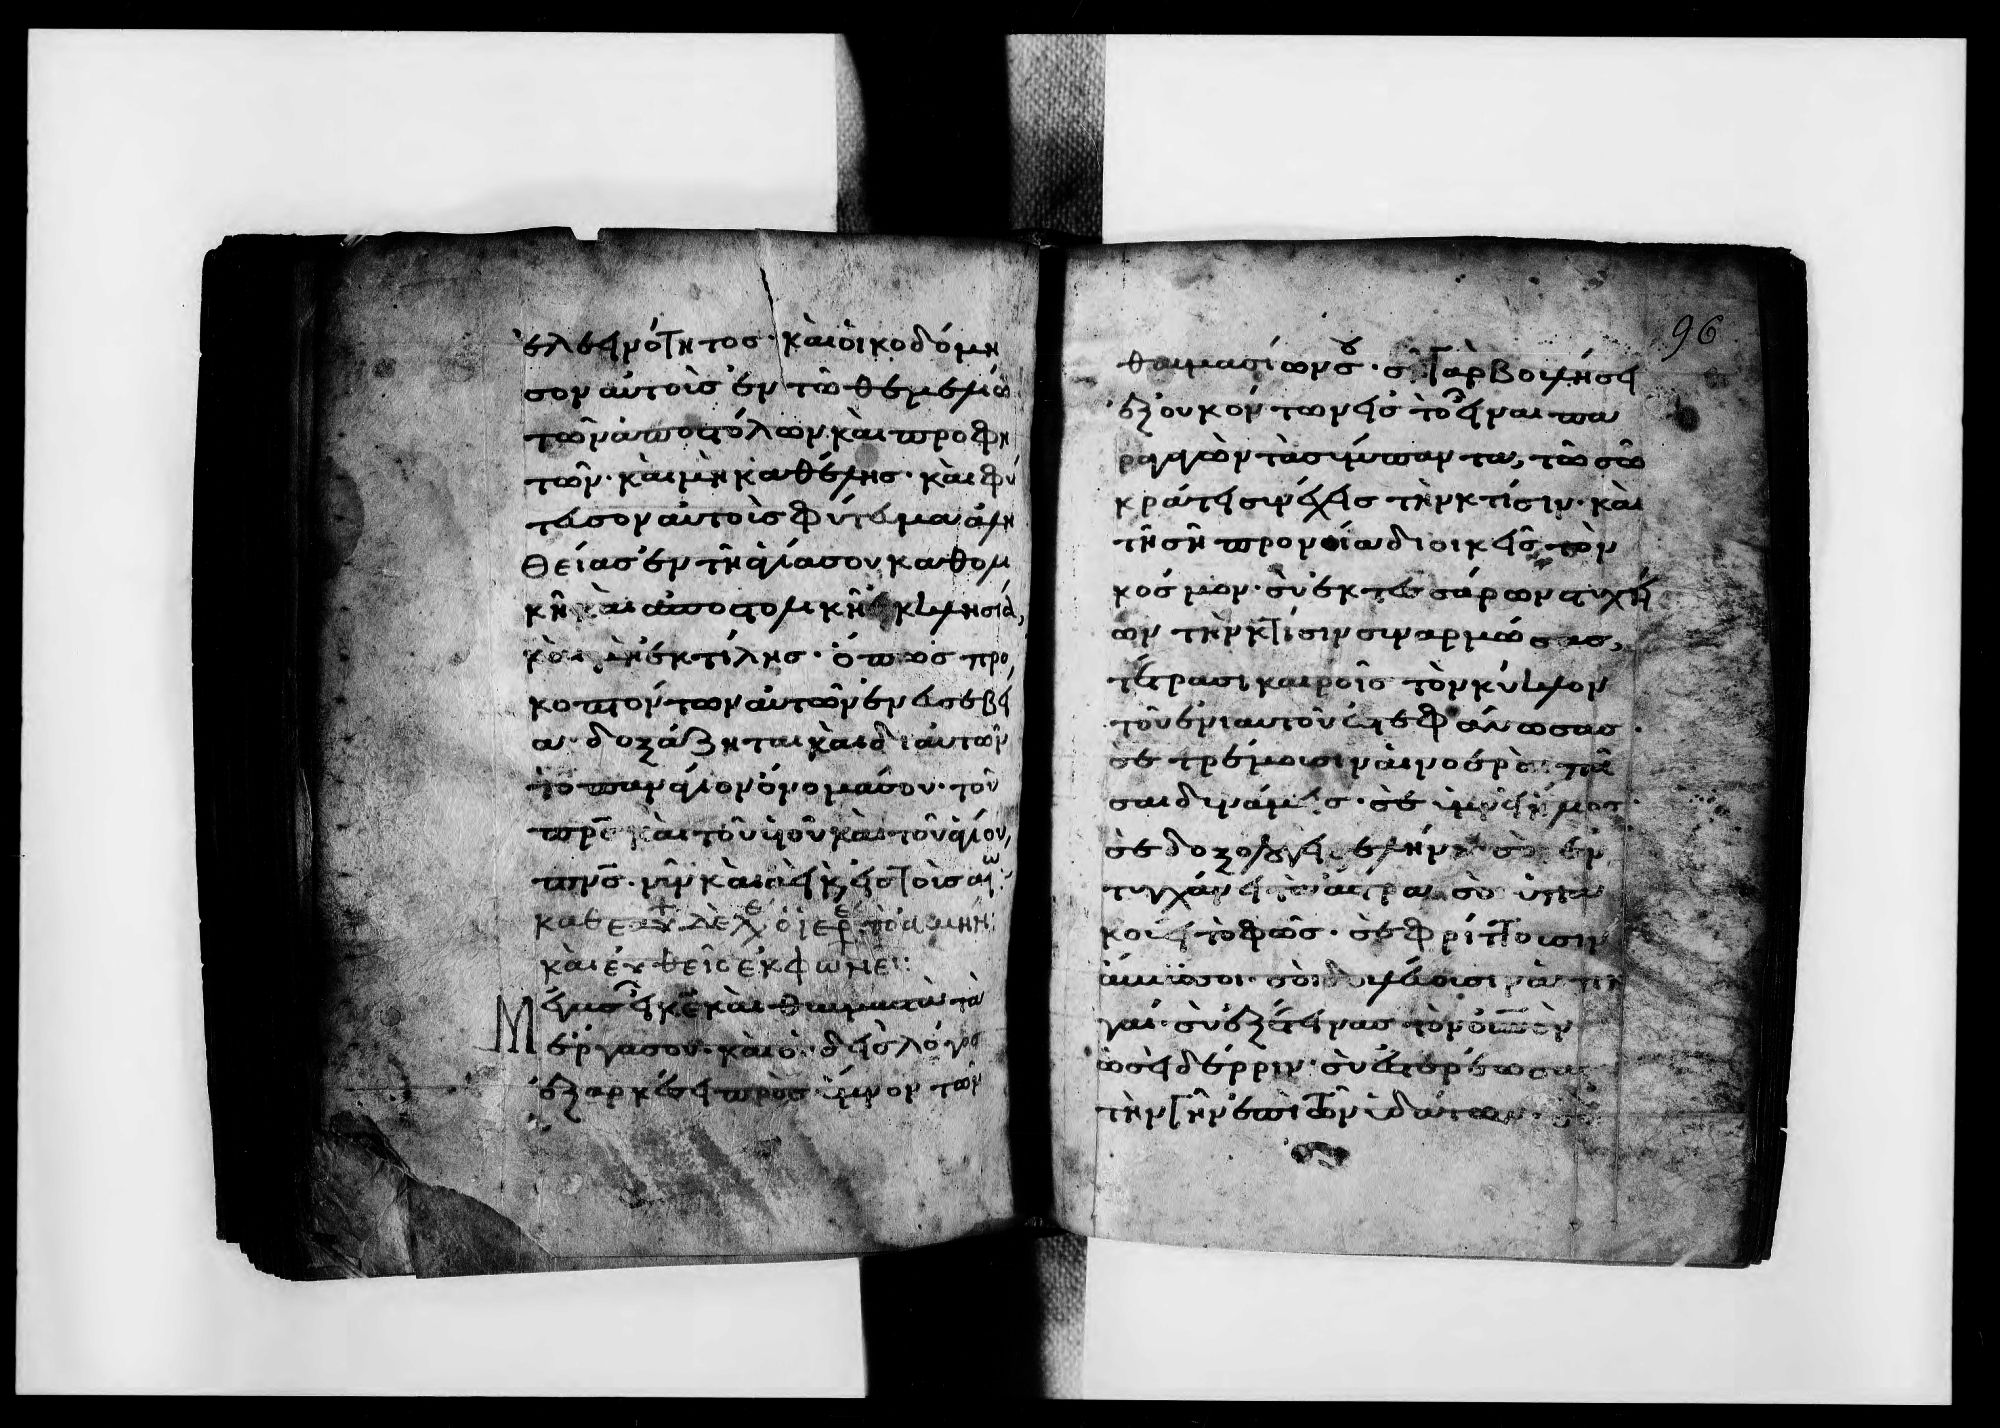 ἐλεεινότητος· καὶ οἰκοδόμη
σον αὐτοὺς ἐν τῶ θεμελίω
τῶν ἀποστόλων καὶ προφη
τῶν· καὶ μὴ καθέλης· καὶ φύ
τευσον αὐτοὺς φύτευμα ἀλη
θείας ἐν τῆ ἁγία σου καθολι
κῆ καὶ ἀποστολικῆ ἐκκλησία,
καὶ μὴ ἐκτίλης· ὅπως προ
κοπτόντων αὐτῶν ἐν εὐσεβεί
α· δοξάζηται καὶ δι αὐτῶν
τὸ πανάγιον ὄνομά σου· τοῦ
πρς καὶ τοῦ υἱοῦ καὶ τοῦ ἁγίου
πνς· νῦν καὶ ἀεὶ κ, εἰς τοὺς αἰω
ὁ ἱερ τὸ ἀμήν:
καὶ εὐθεὶς ἐκφωνεῖ:
Μέγας εἶ κε καὶ θαυμαστὰ τὰ
ἔργα σου· καὶ οὐδεὶς λόγος
ἐξαρκέσει πρὸς ὕμνον τῶν
96
θαυμασίων σου· σὺ γὰρ βουλήσει
ἐξ οὐκ ὄντων εἰς τὸ εἶναι πα
ραγαγὼν τὰ σύμπαντα, τῶ σῶ
κράτει συνέχεις τὴν κτίσιν· καὶ
τῆ σῆ προνοία διοικεῖς τὸν
κόσμον· σὺ ἐκ τεσσάρων στυχεί
ων τὴν κτίσιν συναρμώσας,
τέτρασι καιροῖς τὸν κύκλον
τοῦ ἐνιαυτοῦ ἐστεφάνωσας·
σὲ τρέμουσιν αἱ νοεραὶ πᾶ
σαι δυνάμεις· σὲ ὑμνεῖ ἥλιος·
σὲ δοξολογεῖ σελήνη· σοὶ ἐν
τυγχάνει τὰ ἄστρα· σοὶ ὑπα
κούει τὸ φῶς· σὲ φρίττουσιν
ἄβυσσοι· σοὶ δουλεύουσιν αἱ πη
γαί· σὺ ἐξέτεινας τὸν οὐνὸν
ὡσεὶ δέρριν· σὺ ἐστερέωσας
τὴν γῆν ἐπὶ τῶν ὑδάτων·